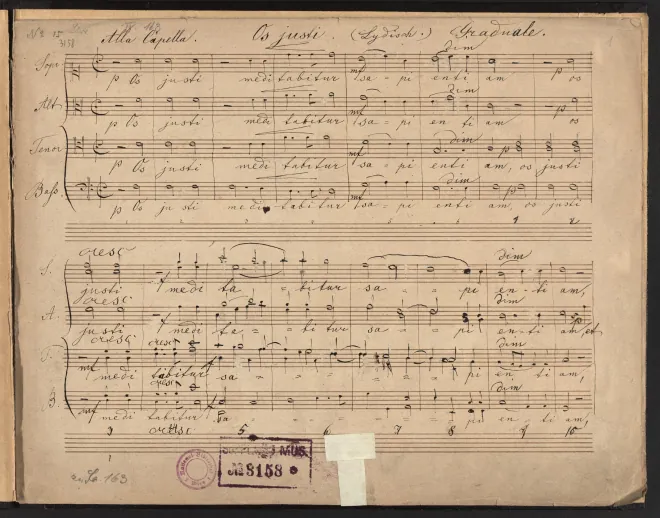 Nº 3 15
3158
Alla Capella. Os justi. (Lydisch.) Graduale.
dim
Sopr
p Os justi meditabitur mf sapi = enti am os
dim
Alt
p Os justi meditabitur mf sa = pi en ti am os
dim
Tenor
p Os justi meditabitur mf sa = pi enti am, p os justi
dim
Bass.
p Os justi meditabitur mf sa = pi enti am, p os justi
cresc dim
S.
justi f medi ta = bitur sa = pi en = ti am,
cresc dim
A.
justi f medi ta = = bitur sa = = pi en = ti am, et
cresc cresc dim
T.
mf meditabitur f sa = = = = = pi en ti am,
cresc dim
B.
mf meditabitur f sa = = = = = pi en ti am,
3 cresc 5 6 7 8 9 10
MUS.
№ 3158